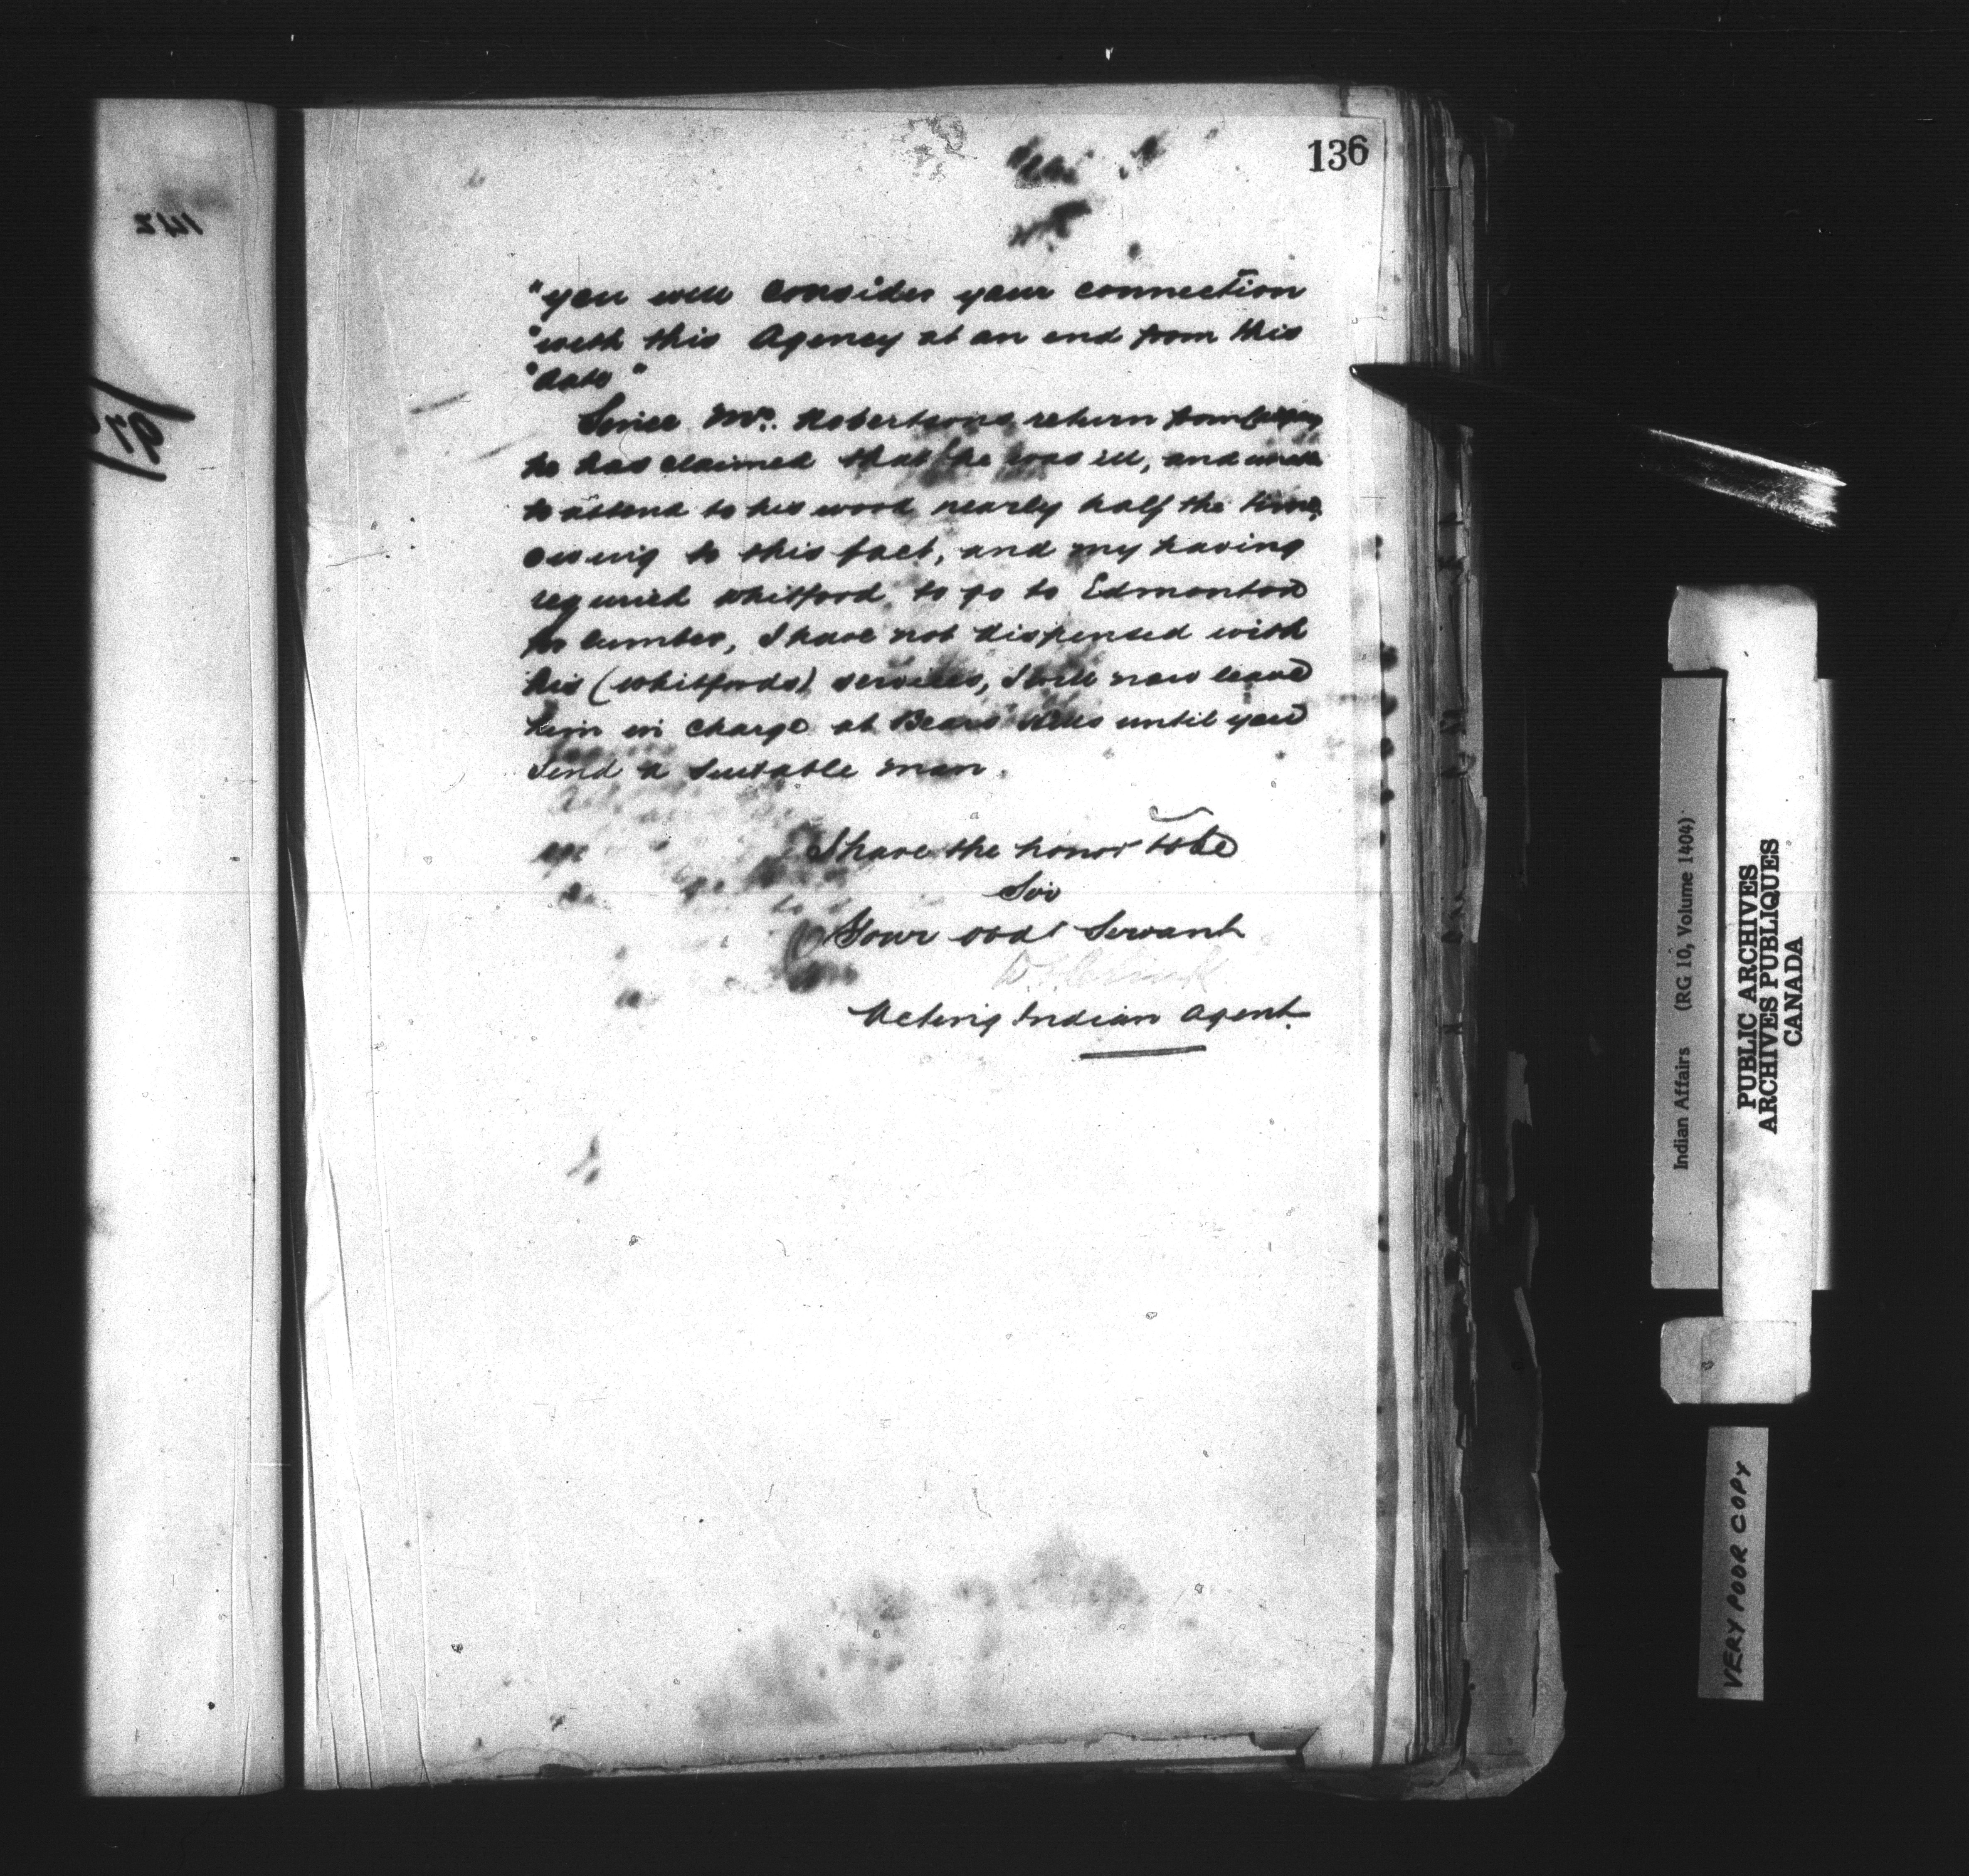 136
"you will consider your connection
"with this Agency at an end from this
"date"
Since Mr. Robertsons return from
he has claimed that he was ill, and unable
to attend to his work nearly half the time,
owing to this fact, and my having
required Whitford to go to Edmonton
for lumber, I have not dispensed with
his (Whitfords) services, I will now leave
him in charge at Bears Hills until you
send a suitable man.
I have the honor to be
Sir
Your obdt Servant
Acting Indian Agent.
142
Indian Affairs (RG 10, Volume 1404)
PUBLIC ARCHIVES
ARCHIVES PUBLIQUES
CANADA
VERY POOR COPY